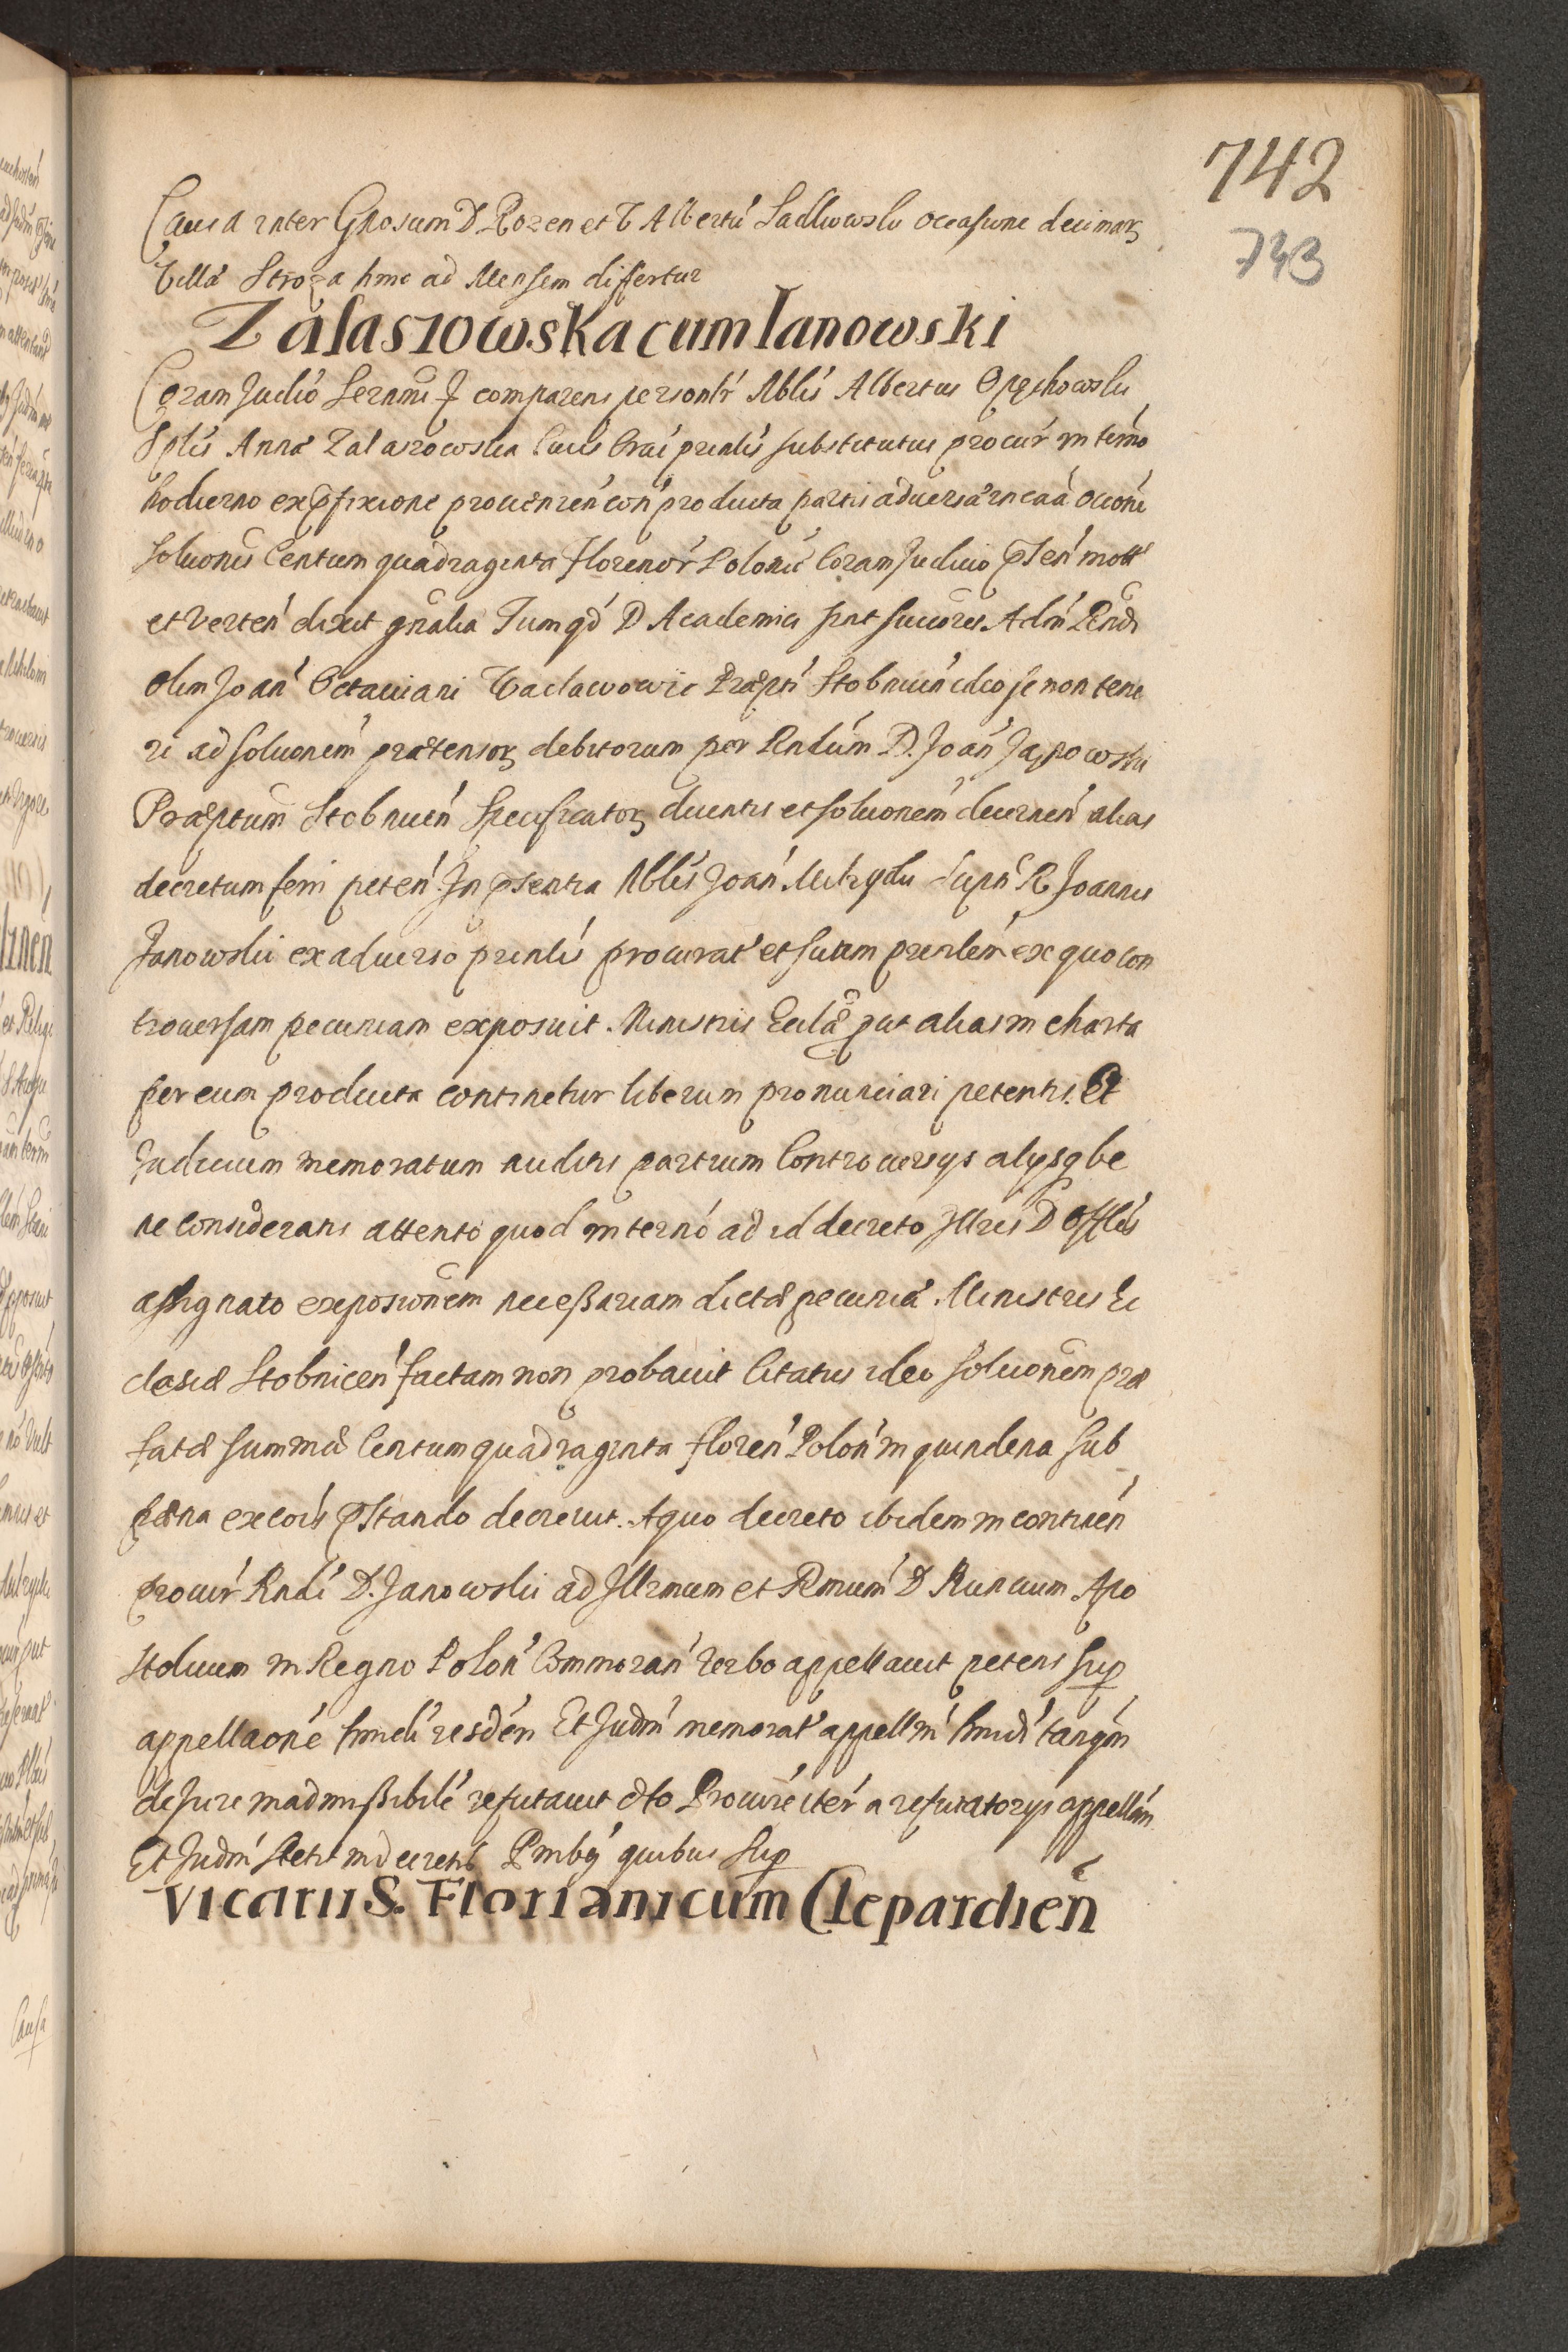 742
743
Causa inter Gnosum D. Rozen et V Albertū Sadkowski occasione decimarꝫ
Villæ Stroza hinc ad Mensem differtur
Zalaszowska cum Ianowski
Coram Judió comparens personlr Nblis Albertus
Sptis Annæ Zalaszowska Civis Crac prnlis substitutus procur in termo
hodierno ex ꝑfixione provenien con producta partis adversæ in caa occone
soluonis Centum quadraginta Florenor Poloni Coram Judicio ꝑsen mott
et verten dixit gnalia Tum qd D Academici sint succores Adm Rndi
olim Joan Octaviani Præpti Stobnicen ideo se non tene
ri ad soluonem prætensorꝫ debitorum per Rndum D. Joan Janowski
Præptum Stobnicen Specificatorꝫ ducentis et soluonem decernen alias
decretum ferri peten. In ꝑsentia Nblis Joan R Joannis
Janowski ex adverso prnlis procurat et suum prnlem ex quo con
troversam pecuniam exposuit. Ministris Eccla put alias in charta
per eum producta continetur liberum pronunciari petentis. Et
Judicium memoratum auditis partium Controversijs alijsq be
ne considerans attento quod in terno ad id decreto Illris D Offlis
assignato exposionem necessariam dictæ pecuniæ Ministris Ec
clesiæ Stobnicen factam non probavit Citatus ideo soluonem præ
fatæ summæ Centum quadraginta floren Polon in quindena sub
pæna excois ꝑstando decrevit. A quo decreto ibidem in contnen
procur Rndi D. Janowski ad Illrmum et Rmum D Nuncium Apo
stolicum in Regno Polon Commoran verbo appellavit petens sup
appellaone hmodi resden Et Judm memorat appellm hmodi tanqm
de jure inadmissibile refutavit dto Procure iter a refutatorys appellan
Et Judm stetit in decretis Pntbg quibus sup
Vicarii S. Floriani cum Clepardień